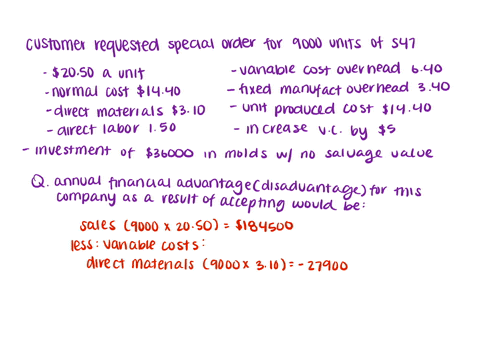 customer requested special order for 9000 units of S47
- $20.50 a unit
- normal cost $14.40
- direct materials $3.10
- direct labor 1.50
- variable cost overhead 6.40
- fixed manufact overhead 3.40
- unit produced cost $14.40
- increase v.c. by $5
- investment of $36000 in molds w/ no salvage value
Q. annual financial advantage (disadvantage) for this
company as a result of accepting would be:
sales (9000 x 20.50) = $184500
less: variable costs:
direct materials (9000 x 3.10) = -27900